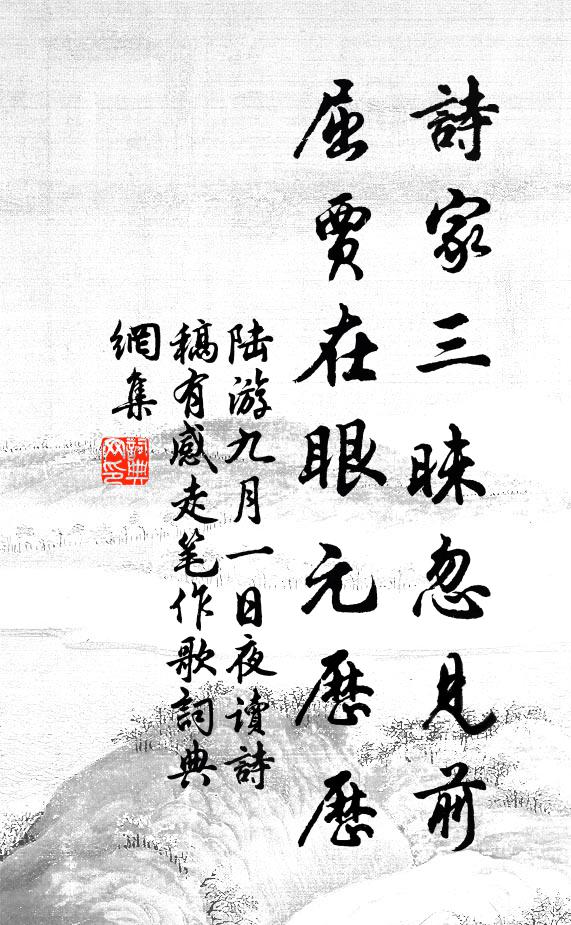 詩家三昧忽見前
屈賈在眼元歷歷
陆游九月一日夜读詩
稿有感走笔作歌詞典
網集
詞典
网印